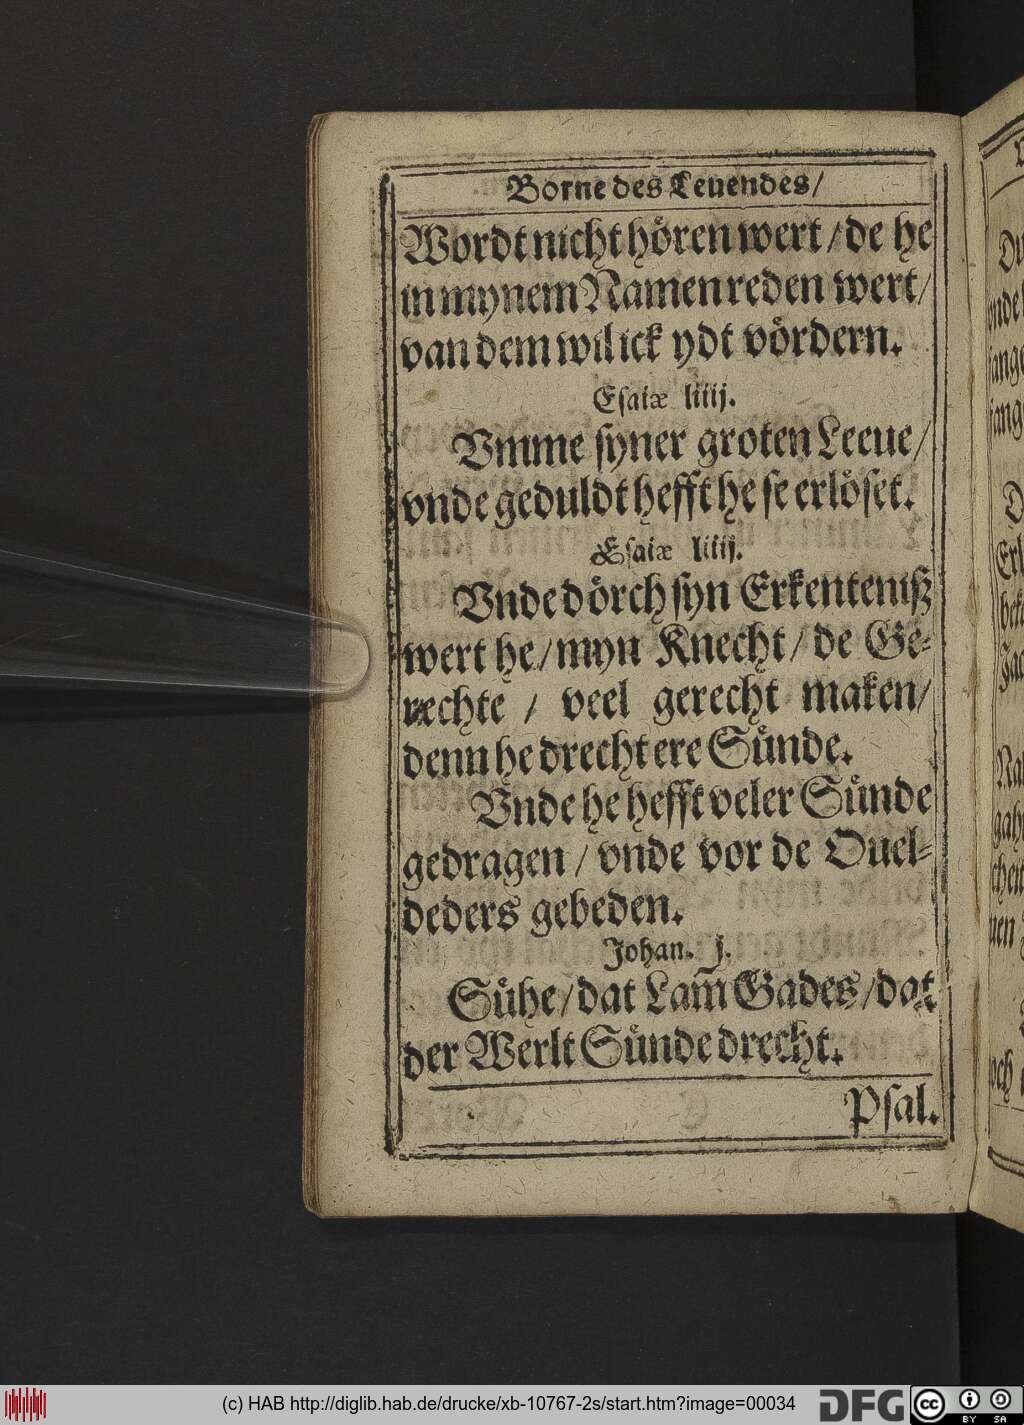 Borne des Leuendes/
Wordt nicht hören wert/ de he
in mynem Namen reden wert/
van dem wil ick ydt vördern.
Esaiæ liiij.
Vmme syner groten Leeue/
vnde geduldt hefft he se erlöset.
Esaiæ liiij.
Vnde dörch syn Erkenteniß
wert he/ myn Knecht/ de Ge-
rechte / veel gerecht maken/
denn he drecht ere Sünde.
Vnde he hefft veler Sünde
gedragen / vnde vor de Ouel-
deders gebeden.
Johan. j.
Sühe/ dat Lam̃ Gades/ dat
der Werlt Sünde drecht.
Psal.
(c) HAB http://diglib.hab.de/drucke/xb-10767-2s/start.htm?image=00034
DFG
cc BY SA